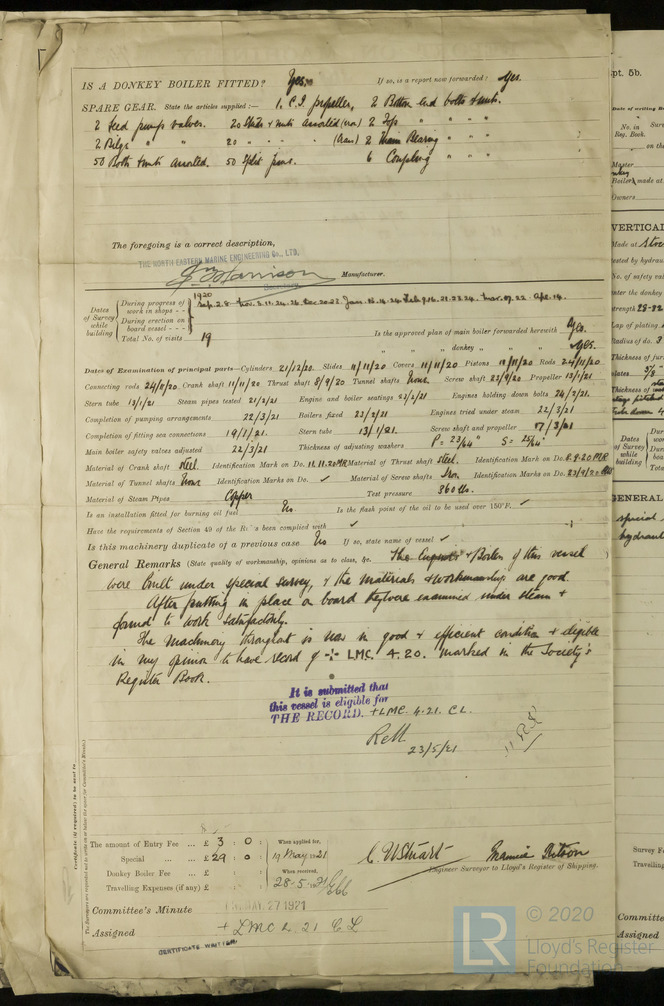 IS A DONKEY BOILER FITTED? Yes. If so, is a report now forwarded? Yes.
SPARE GEAR. State the articles supplied:— 1. C.I. propeller, 2 Bottom end bolts & nuts.
2 Feed pump valves. 20 Studs & nuts assorted (iron) 2 Top " " " "
2 Bilge " " 20 " " " " 2 Main Bearing " " "
50 Bolts & nuts assorted. 50 Split pins. 6 Coupling " " "
The foregoing is a correct description,
THE NORTH EASTERN MARINE ENGINEERING Co., LTD.
Harrison Manufacturer.
Dates of Survey while building
During progress of work in shops - - 1920 Sep. 2. 8. Nov. 2. 11. 24. 26. Dec 20. 22. Jan.
During erection on board vessel - - -
Total No. of visits 19
Is the approved plan of main boiler forwarded herewith Yes.
" " " donkey " " " Yes.
Dates of Examination of principal parts—Cylinders 21/12/20. Slides 11/11/20 Covers 11/11/20 Pistons 11/11/20 Rods 24/11/20.
Connecting rods 24/11/20 Crank shaft 11/11/20 Thrust shaft 8/9/20 Tunnel shafts Screw shaft 23/9/20 Propeller 13/1/21
Stern tube 13/1/21. Steam pipes tested 21/2/21 Engine and boiler seatings 21/2/21 Engines holding down bolts 24/2/21.
Completion of pumping arrangements 22/3/21 Boilers fixed 23/2/21 Engines tried under steam 22/3/21
Completion of fitting sea connections 19/1/21. Stern tube 13/1/21. Screw shaft and propeller 17/3/21
Main boiler safety valves adjusted 22/3/21 Thickness of adjusting washers P= 23/64" S= 25/64"
Material of Crank shaft Steel. Identification Mark on Do. 11.11.20 MR Material of Thrust shaft Steel. Identification Mark on Do. 8.9.20 MR
Material of Tunnel shafts Identification Marks on Do. ✓ Material of Screw shafts Iron. Identification Marks on Do. 23/9/20
Material of Steam Pipes Copper Test pressure 360 lbs.
Is an installation fitted for burning oil fuel No Is the flash point of the oil to be used over 150°F. ✓
Have the requirements of Section 49 of the Rules been complied with ✓
Is this machinery duplicate of a previous case No If so, state name of vessel ✓
General Remarks (State quality of workmanship, opinions as to class, &c. The Engines & Boilers of this vessel
were built under special survey, & the materials & workmanship are good.
After putting in place on board they were examined under steam &
found to work satisfactorily.
The Machinery throughout is now in good & efficient condition & eligible
in my opinion to have record of + LMC. 4.20. marked in the Society's
Register Book.
It is submitted that
this vessel is eligible for
THE RECORD. + LMC. 4.21. CL.
23/5/21
The amount of Entry Fee ... £ 3 : 0 : When applied for,
Special ... ... £ 29 : 0 : 19 May 1921
Donkey Boiler Fee ... £ : : When received,
Travelling Expenses (if any) £ : : 28.5.21
C. W. Stuart
Engineer Surveyor to Lloyd's Register of Shipping.
Committee's Minute MAY 27 1921
Assigned + LMC 4.21 CL
CERTIFICATE WRITTEN
Certificate (if required) to be sent to
Rpt. 5b.
Date of writing
No. in Reg. Book.
Master
Boilers made at
Owners
VERTICAL
Made at
GENERAL
special
hydraul
Committe
Assigned
LR
© 2020
Lloyd's Register
Foundation